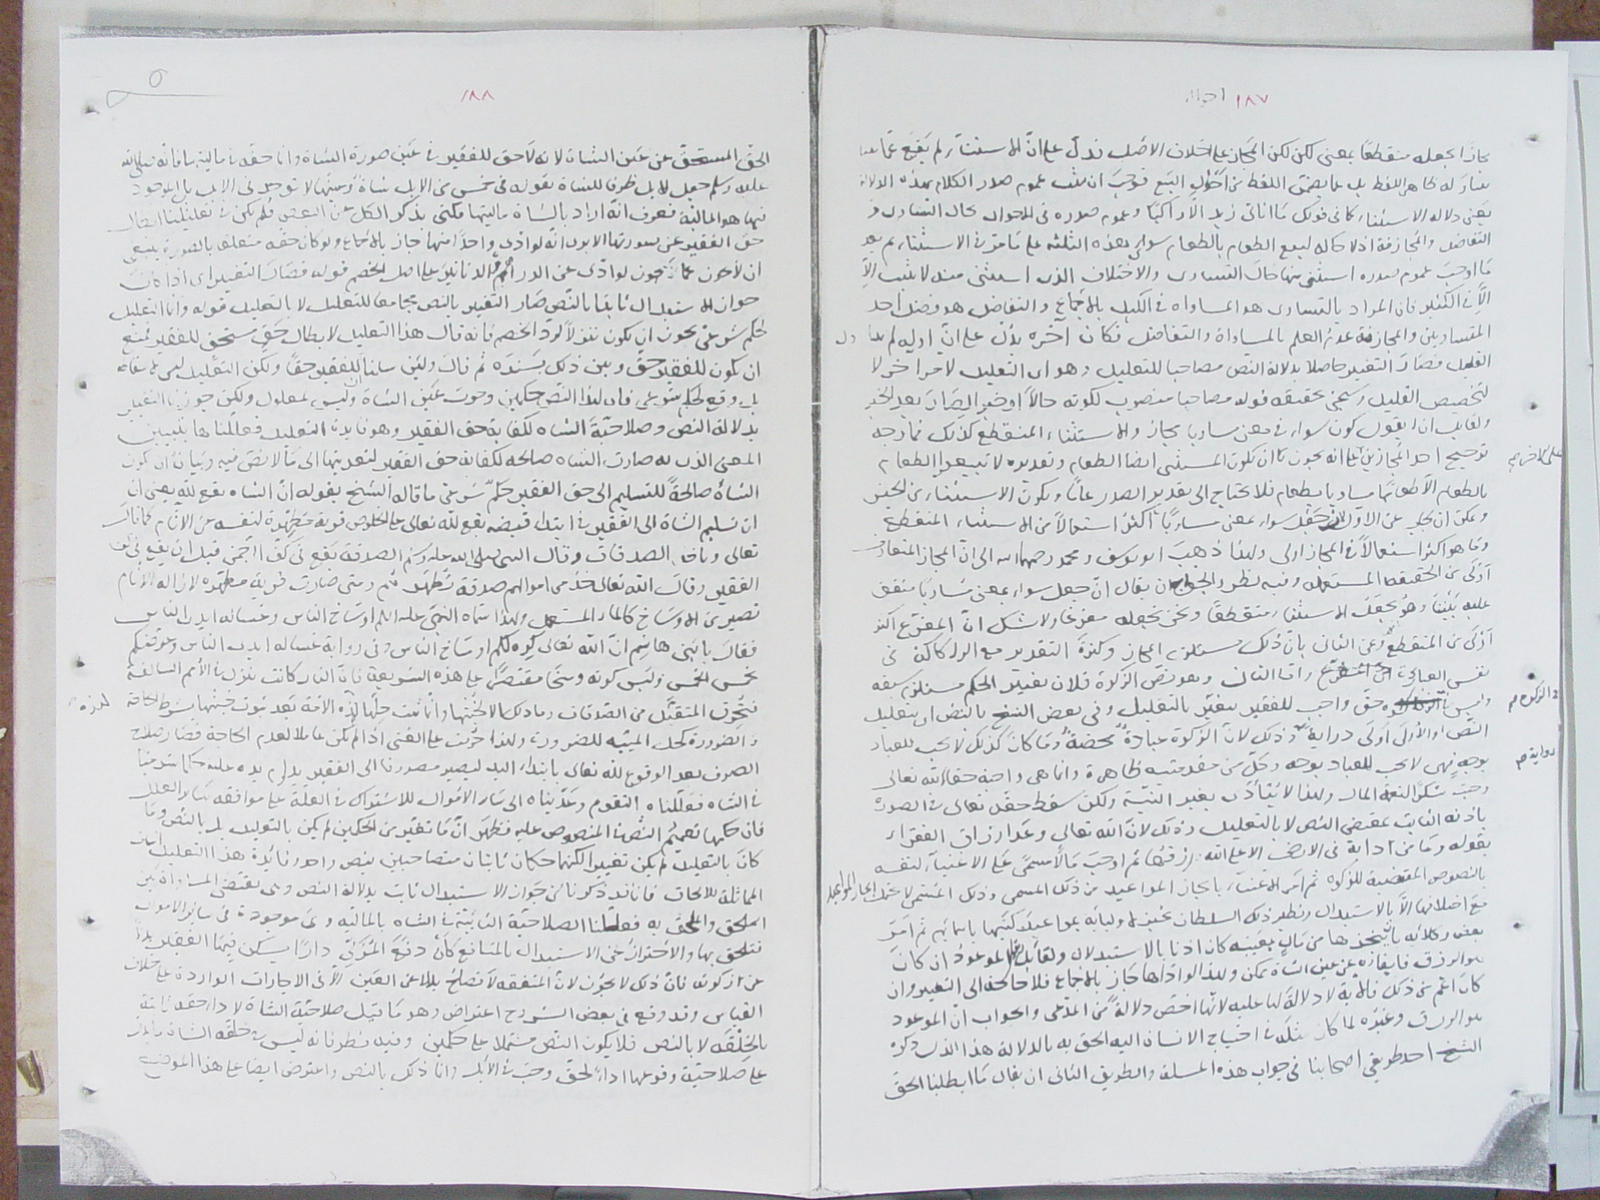 ١٨٧
مجازا بجعله منقطعا بمعنى لكن لكن المجاز على خلاف الاصل ندل على ان الاستثناء لم يقع عما
يتناوله ظاهر اللفظ بل عما يضمن اللفظ من احوال البيع فوجب ان يثبت عموم صدر الكلام بهذه الدلالة
يعني دلالة الاستثناء كما في قولك ما اتاني زيد الا راكبا وعموم صدره في الاحوال حال التساوي و
التفاضل والمجازفة اذ لا حالة لبيع الطعام بالطعام سوى هذه الثلثة على ما مر في الاستثناء ثم
ما اوجب عموم صدره استثنى منها حال التساوي والاختلاف الذي استثنى منه لا يثبت الا
الا في الكثير فان المراد بالتساوي هو المساواة في الكيل بالاجماع والتفاضل هو فضل احد
المتساويين والمجازفة عدم العلم بالمساواة والتفاضل فكان آخره يدل على ان اوله لم
القليل فصار التغيير حاصلا بدلالة النص مصاحبا للتعليل وهو اي التعليل لامر آخر لا
لتخصيص القليل وسيجيء تحقيقه قوله مصاحبا منصوب لكونه حالا او خبر لصار بعد الخبر
ولقائل ان يقول كون سواء في معنى مساويا مجاز والاستثناء المنقطع كذلك فما وجه
ترجيح احد المجازين على انه يجوز ان يكون المستثنى ايضا الطعام وتقديره لا تبيعوا الطعام
على الآخر
بالطعام الا طعاما مساويا بطعام فلا يحتاج الى تقدير الصدر عاما ويكون الاستثناء من الجنس
ويمكن ان يجاب عن الاول بان جعل سواء بمعنى مساويا اكثر استعمالا من الاستثناء المنقطع
وما هو اكثر استعمالا في المجاز اولى ولهذا ذهب ابو يوسف ومحمد رحمهما الله الى ان المجاز المتعارف
اولى من الحقيقة المستعملة وفيه نظر والجواب ان يقال ان جعل سواء بمعنى مساويا متفق
عليه بيننا وهو يجعل الاستثناء منقطعا ونحن نجعله مفرغا ولا شك ان المفرغ اكثر
اولى من المنقطع وعن الثاني بان ذلك مستلزم المجاز وكثرة التقدير مع
واما الثاني وهو نص الزكوة فلان تغيير الحكم مستلزم سبقه
وليس حق واجب للفقير يتغير بالتعليل وفي بعض النسخ بالنص اي بتعليل
في الزكوة
النص والاولى اولى دراية وذلك لان الزكوة عبادة محضة وما كان كذلك لا يجب للعباد
رواية
بوجه فهي لا تجب للعباد بوجه وحل من مقدمتيه ظاهرة وانما هي واجبة حقا لله تعالى
وجبت شكرا لنعمة المال ولهذا لا يتأدى بغير النية ولكن سقط حقه تعالى في الصورة
باذنه الثابت بمقتضى النص لا بالتعليل وذلك لان الله تعالى وعد ارزاق الفقراء
بقوله وما من دابة في الارض الا على الله رزقها ثم اوجب مالا مسمى على الاغنياء لنفسه
بالنصوص المقتضية للزكوة ثم امر الاغنياء بانجاز المواعيد من ذلك المسمى وذلك المسمى لا يحتمل انجاز المواعيد
مع اختلافها الا بالاستبدال ونظير ذلك السلطان يجيز لاوليائه بمواعيد كتبها باسمائهم ثم امر
بعض وكلائه بان ينجزها من مال بعينه كان اذنا بالاستبدال ولقائل الموعود ان كان
هو الرزق فايفاؤه من عين الشاة ممكن ولهذا لو اداها جاز بالاجماع فلا حاجة الى التغيير وان
كان اعم من ذلك فالآية لا دلالة لها عليه لانها اخص دلالة من المدعى والجواب ان الموعود
هو الرزق وغيره لما كان مثله في احتياج الانسان اليه الحق به بالدلالة هذا الذي ذكره
الشيخ احد طريقي اصحابنا في جواب هذه المسلة والطريق الثاني ان يقال ما ابطلنا الحق
١٨٨
الحق المستحق عن عين الشاة لانه لا حق للفقير في عين صورة الشاة وانما حقه في ماليتها فانه صلى الله
عليه وسلم جعل الابل ظرفا للشاة بقوله في خمس من الابل شاة وعينها لا توجد في الابل بل الموجود
فيها هو المالية فعرف انه اراد بالشاة ماليتها فكنى بذكر الكل عن البعض فلم يكن في تعليلنا ابطال
حق الفقير عن صورتها الا يرى انه لو ادى واحدا منها جاز بالاجماع ولو كان حقه متعلقا بالصورة ينبغي
ان لا يجوز كما لا يجوز لو ادى عن الدراهم الدنانير على اصل الخصم قوله فصار التغيير اي اذا كان
جواز الاستبدال ثابتا بالنص صار التغيير بالنص مجامعا للتعليل لا بالتعليل قوله وانما التعليل
لحكم شرعي يجوز ان يكون تنزلا لرد الخصم فانه قال هذا التعليل لابطال حق مستحق للفقير فمنع
ان يكون للفقير حق وبين ذلك بسنده ثم قال ولئن سلمنا للفقير حقا ولكن التعليل ليس لابطاله
بل وقع لحكم شرعي فان لهذا النص حكمين وجوب عين الشاة وليس بمعلول ولكن جوزنا التغيير
بدلالة النص وصلاحية الشاة لكفاية حق الفقير وهو فائدة التعليل فعللناها بتبيين
المعنى الذي به صارت الشاة صالحة لكفاية حق الفقير لتعديتها الى ما لا نص فيه وبيان ان كون
الشاة صالحة للتسليم الى حق الفقير حكم شرعي ما قاله الشيخ بقوله ان الشاة تقع لله يعني ان
ان تسليم الشاة الى الفقير في ابتداء قبضه يقع لله تعالى على الخلوص قربة مطهرة لنفسه من الآثام كما قال
تعالى ويأخذ الصدقات وقال النبي صلى الله عليه وسلم الصدقة تقع في كف الرحمن قبل ان يقع في كف
الفقير وقال الله تعالى خذ من اموالهم صدقة تطهرهم ومتى صارت قربة مطهرة لازالة الآثام
تصير من الاوساخ كالماء المستعمل ولهذا سماه النبي عليه السلام اوساخ الناس وغسالة ايدي الناس
فقال يا بني هاشم ان الله تعالى كره لكم اوساخ الناس وفي رواية غسالة ايدي الناس وعوضكم
بخمس الخمس وليس كونه وسخا مقتصرا على هذه الشريعة فان النار كانت تنزل في الامم السالفة
فتحرق المتقبل من الصدقات وما ذلك الا لخبثها وانما ثبت حلها لهذه الامة بعد ثبوت خبثها بشرط الحاجة
لهذه
والضرورة كحل الميتة للضرورة ولهذا حرمت على الغني اذا لم يكن عاملا لعدم الحاجة فصار صلاح
الصرف بعد الوقوع لله تعالى بابتداء اليد ليصير مصروفا الى الفقير بدوام يده عليه حكما شرعيا
في الشاة فعللناه بالتقوم وعديناه الى سائر الاموال للاشتراك في العلة على موافقة سائر العلل
فان حكمها تعميم النص المنصوص عليه فظهر ان ما تغير من الحكمين لم يكن بالتعليل بل بالنص وما
كان بالتعليل لم يكن تغييرا لكنهما حكمان ثابتان متصاحبين بنص واحد وفائدة هذا التعليل اثبات
المماثلة للالحاق فانا قد ذكرنا ان جواز الاستبدال ثابت بدلالة النص وهي تقتضي المساواة بين
الملحق والملحق به فعللنا الصلاحية الثابتة في الشاة بالمالية وهي موجودة في سائر الاموال
فتلحق بها والاحتراز عن الاستبدال بالمنافع كان دفع المزكي دارا يسكن فيها الفقير بدلا
عن زكوته فان ذلك لا يجوز لان المنفعة لا تصلح بدلا عن العين الا في الاجارات الواردة على خلاف
القياس وقد وقع في بعض الشروح اعتراض وهو ما قيل صلاحية الشاة لاداء حقه ثابتة
بالخلقة لا بالنص فلا يكون النص مشتملا على حكمين وفيه نظر فانه ليس في خلقة الشاة ما يدل
على صلاحية وقوعها اداء لحق وجب في الابل وانما ذلك بالنص واعترض ايضا على هذا الموضع